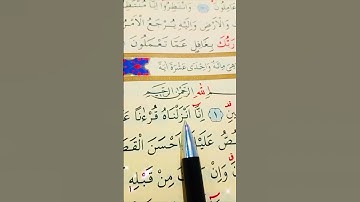 عَامِلُونَ وَانْتَظِرُوا اِنَّا مُنْتَظِرُ
وَالْاَرْضِ وَاِلَيْهِ يُرْجَعُ الْاَمْ
رَبُّكَ بِغَافِلٍ عَمَّا تَعْمَلُونَ
هِىَ مِائَةٌ وَاِحْدٰى عَشْرَةَ اٰيَةً
اللّٰهِ الرَّحْمٰنِ الرَّحٖيمِ
ينِ ١ اِنَّٓا اَنْزَلْنَاهُ قُرْءٰنًا عَ
نَقُصُّ عَلَيْكَ اَحْسَنَ الْقَصَ
وَاِنْ مِنْ قَبْلِهٖ